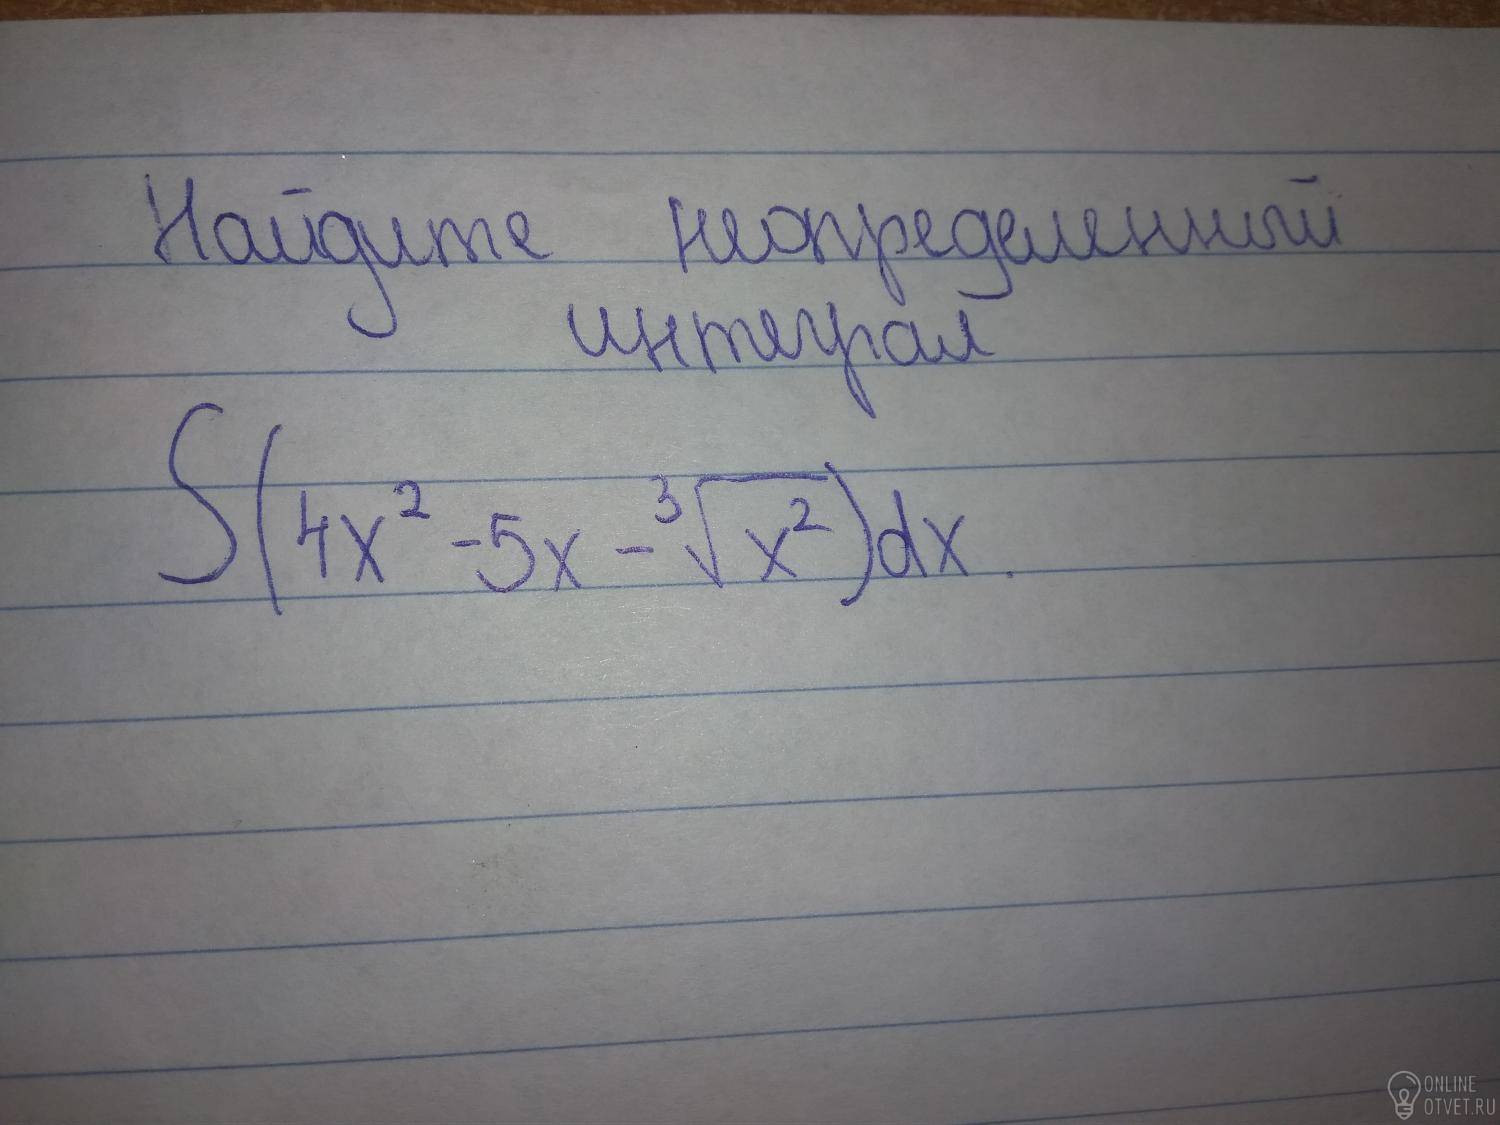 Найдите неопределенный
интеграл
∫(4x² -5x - ³√x²)dx.
ONLINE
OTVET.RU